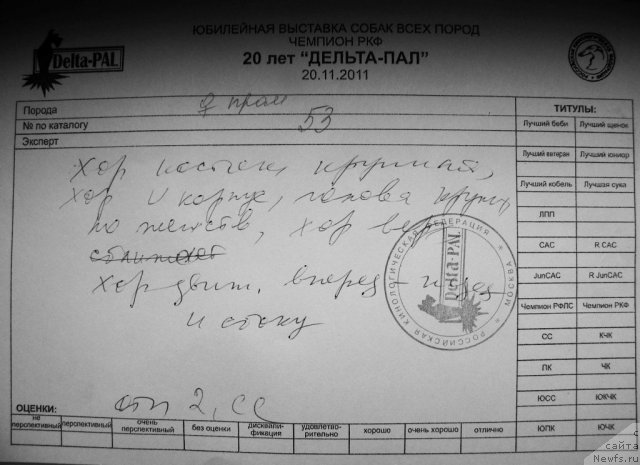 ЮБИЛЕЙНАЯ ВЫСТАВКА СОБАК ВСЕХ ПОРОД
ЧЕМПИОН РКФ
20 лет "ДЕЛЬТА-ПАЛ"
20.11.2011
Delta-PAL
Порода
№ по каталогу 53
Эксперт
Хор костяк, крупная,
хор и корпус, голова крупн
по женств, хор верх
Хор движ. вперед - назад
и сбоку
РОССИЙСКАЯ КИНОЛОГИЧЕСКАЯ ФЕДЕРАЦИЯ + МОСКВА +
Delta-PAL
ОЦЕНКИ: отл 2, СС
не перспективный
перспективный
очень перспективный
без оценки
дисквали-фикация
удовлетво-рительно
хорошо
очень хорошо
отлично
ТИТУЛЫ:
Лучший беби Лучший щенок
Лучший ветеран Лучший юниор
Лучший кобель Лучшая сука
ЛПП
CAC R CAC
JunCAC R JunCAC
Чемпион РФЛС Чемпион РКФ
СС КЧК
ПК ЧК
ЮСС ЮКЧК
ЮПК ЮЧК
с сайта
Newfs.ru